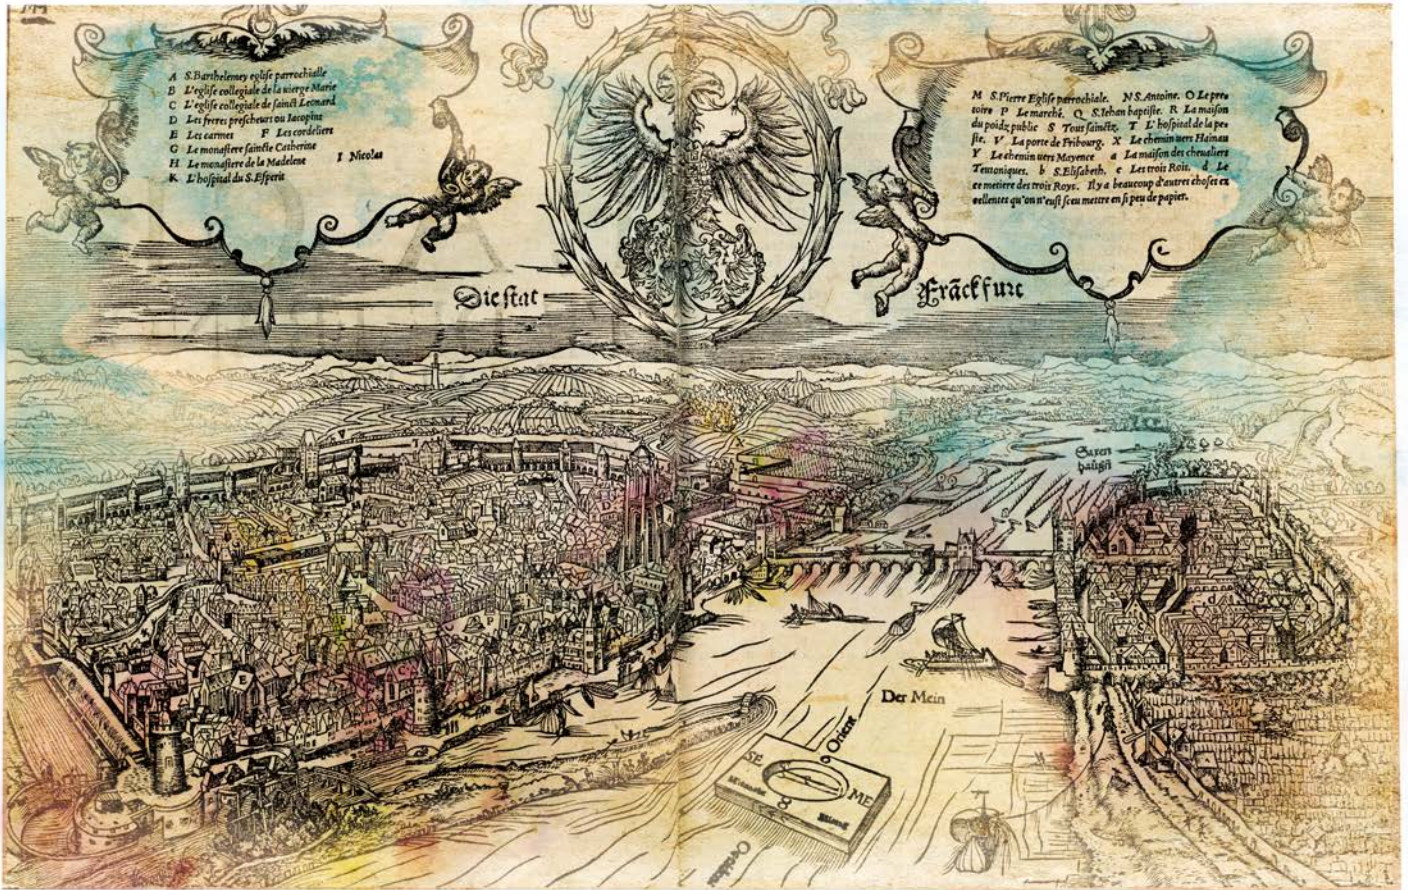 A S.Barthelemey eglise parrochialle
B L'eglise collegiale de la vierge Marie
C L'eglise collegiale de sainct Leonard
D Les freres prescheurs ou Iacopins
E Les carmes F Les cordeliers
G Le monastere saincte Catherine
H Le monastere de la Madelene I Nicolas
K L'hospital du S.Esperit
M S.Pierre Eglise parrochiale. N S.Antoine. O Le pre-
toire P Le marché. Q S.Iehan baptiste. R La maison
du poidz public S Tous sainctz. T L'hospital de la pe-
ste. V La porte de Fribourg. X Le chemin vers Hainau
Y Le chemin vers Mayence a La maison des chevaliers
Teutoniques. b S.Elisabeth. c Les trois Rois. d Le
cemetiere des trois Roys. Il y a beaucoup d'autres choses ex
cellentes qu'on n'eust sceu mettre en si peu de papier.
Die stat
Frãckfurt
Saxen
hausen
E
P
Der Mein
Orient
SE
ME